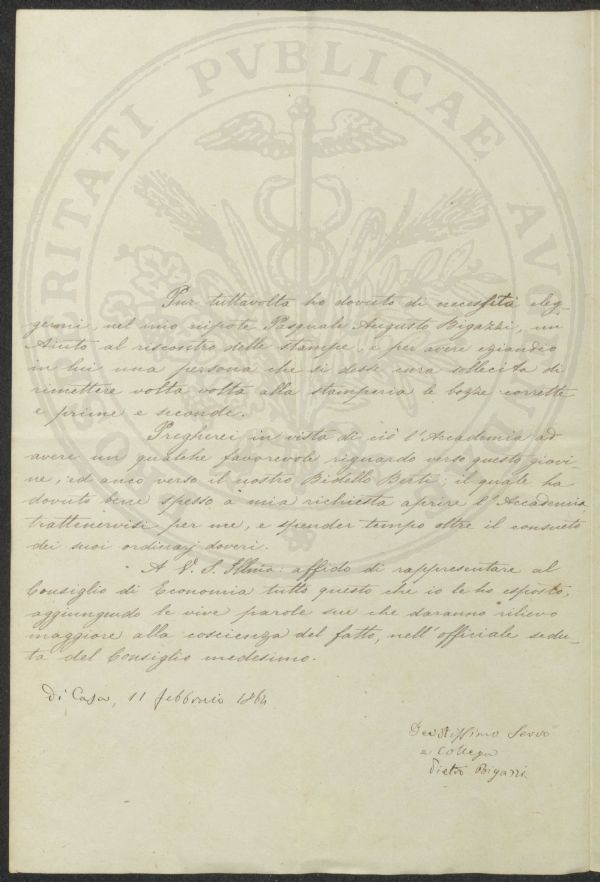 PROSPERITATI PVBLICAE AVGENDAE
Pur tuttavolta ho dovuto di necessità eleg-
germi, nel mio nipote Pasquale Augusto Bigazzi, un
Aiuto al riscontro delle stampe, e per avere eziandio
in lui una persona che si desse cura sollecita di
rimettere volta volta alla stamperia le bozze corrette
e prime e seconde.
Pregherei in vista di ciò l'Accademia ad
avere un qualche favorevole riguardo verso questo giovi-
ne; ed anco verso il nostro Bidello Berti; il quale ha
dovuto bene spesso a mia richiesta aprire l'Accademia
trattenervisi per me, e spender tempo oltre il consueto
dei suoi ordinarj doveri.
A V. S. Illma: affido di rappresentare al
Consiglio di Economia tutto questo che io le ho esposto,
aggiungendo le vive parole sue che daranno rilievo
maggiore alla coscienza del fatto, nell'officiale sedu-
ta del Consiglio medesimo.
Di Casa, 11 febbraio 1864
Devotissimo Servo
e Collega
Pietro Bigazzi